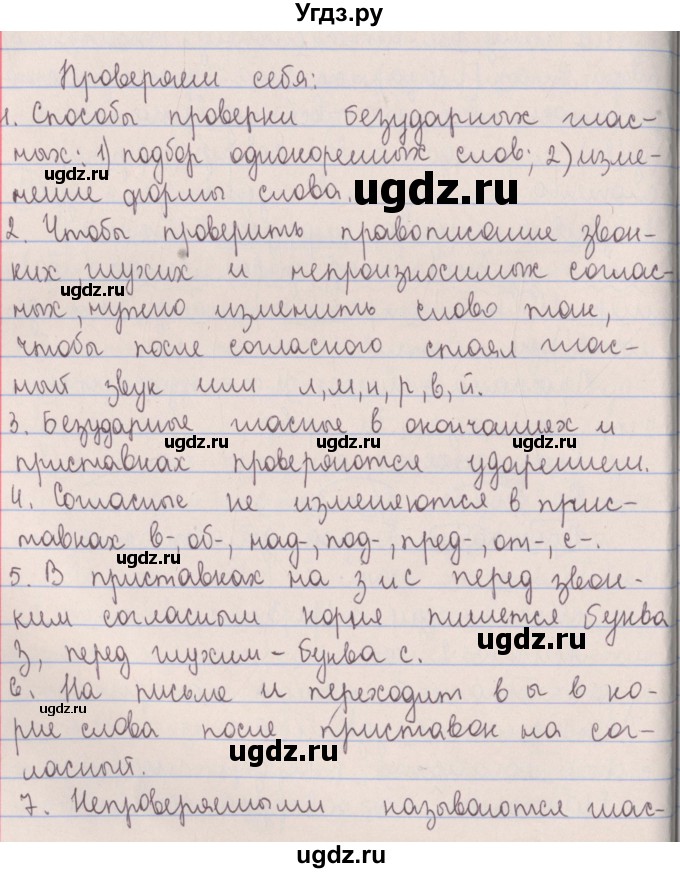 Угдз.ру
Проверяем себя:
1. Способы проверки безударных глас-
ных: 1) подбор однокоренных слов; 2) изме-
нение формы слова.
ugdz.ru
2. Чтобы проверить правописание звон-
ких, глухих и непроизносимых соглас-
ugdz.ru
ных, нужно изменить слово так,
чтобы после согласного стоял глас-
ный звук или л, м, н, р, в, й.
3. Безударные гласные в окончаниях и
ugdz.ru ugdz.ru ugdz.ru
приставках проверяются ударением.
4. Согласные не изменяются в прис-
тавках в-, об-, над-, под-, пред-, от-, с-.
ugdz.ru
5. В приставках на з и с перед звон-
ким согласным корня пишется буква
ugdz.ru
з, перед глухим – буква с.
6. На письме и переходит в ы в ко-
ugdz.ru
рне слова после приставок на сог-
ugdz.ru
ласный.
7. Непроверяемыми называются глас-
ugdz.ru